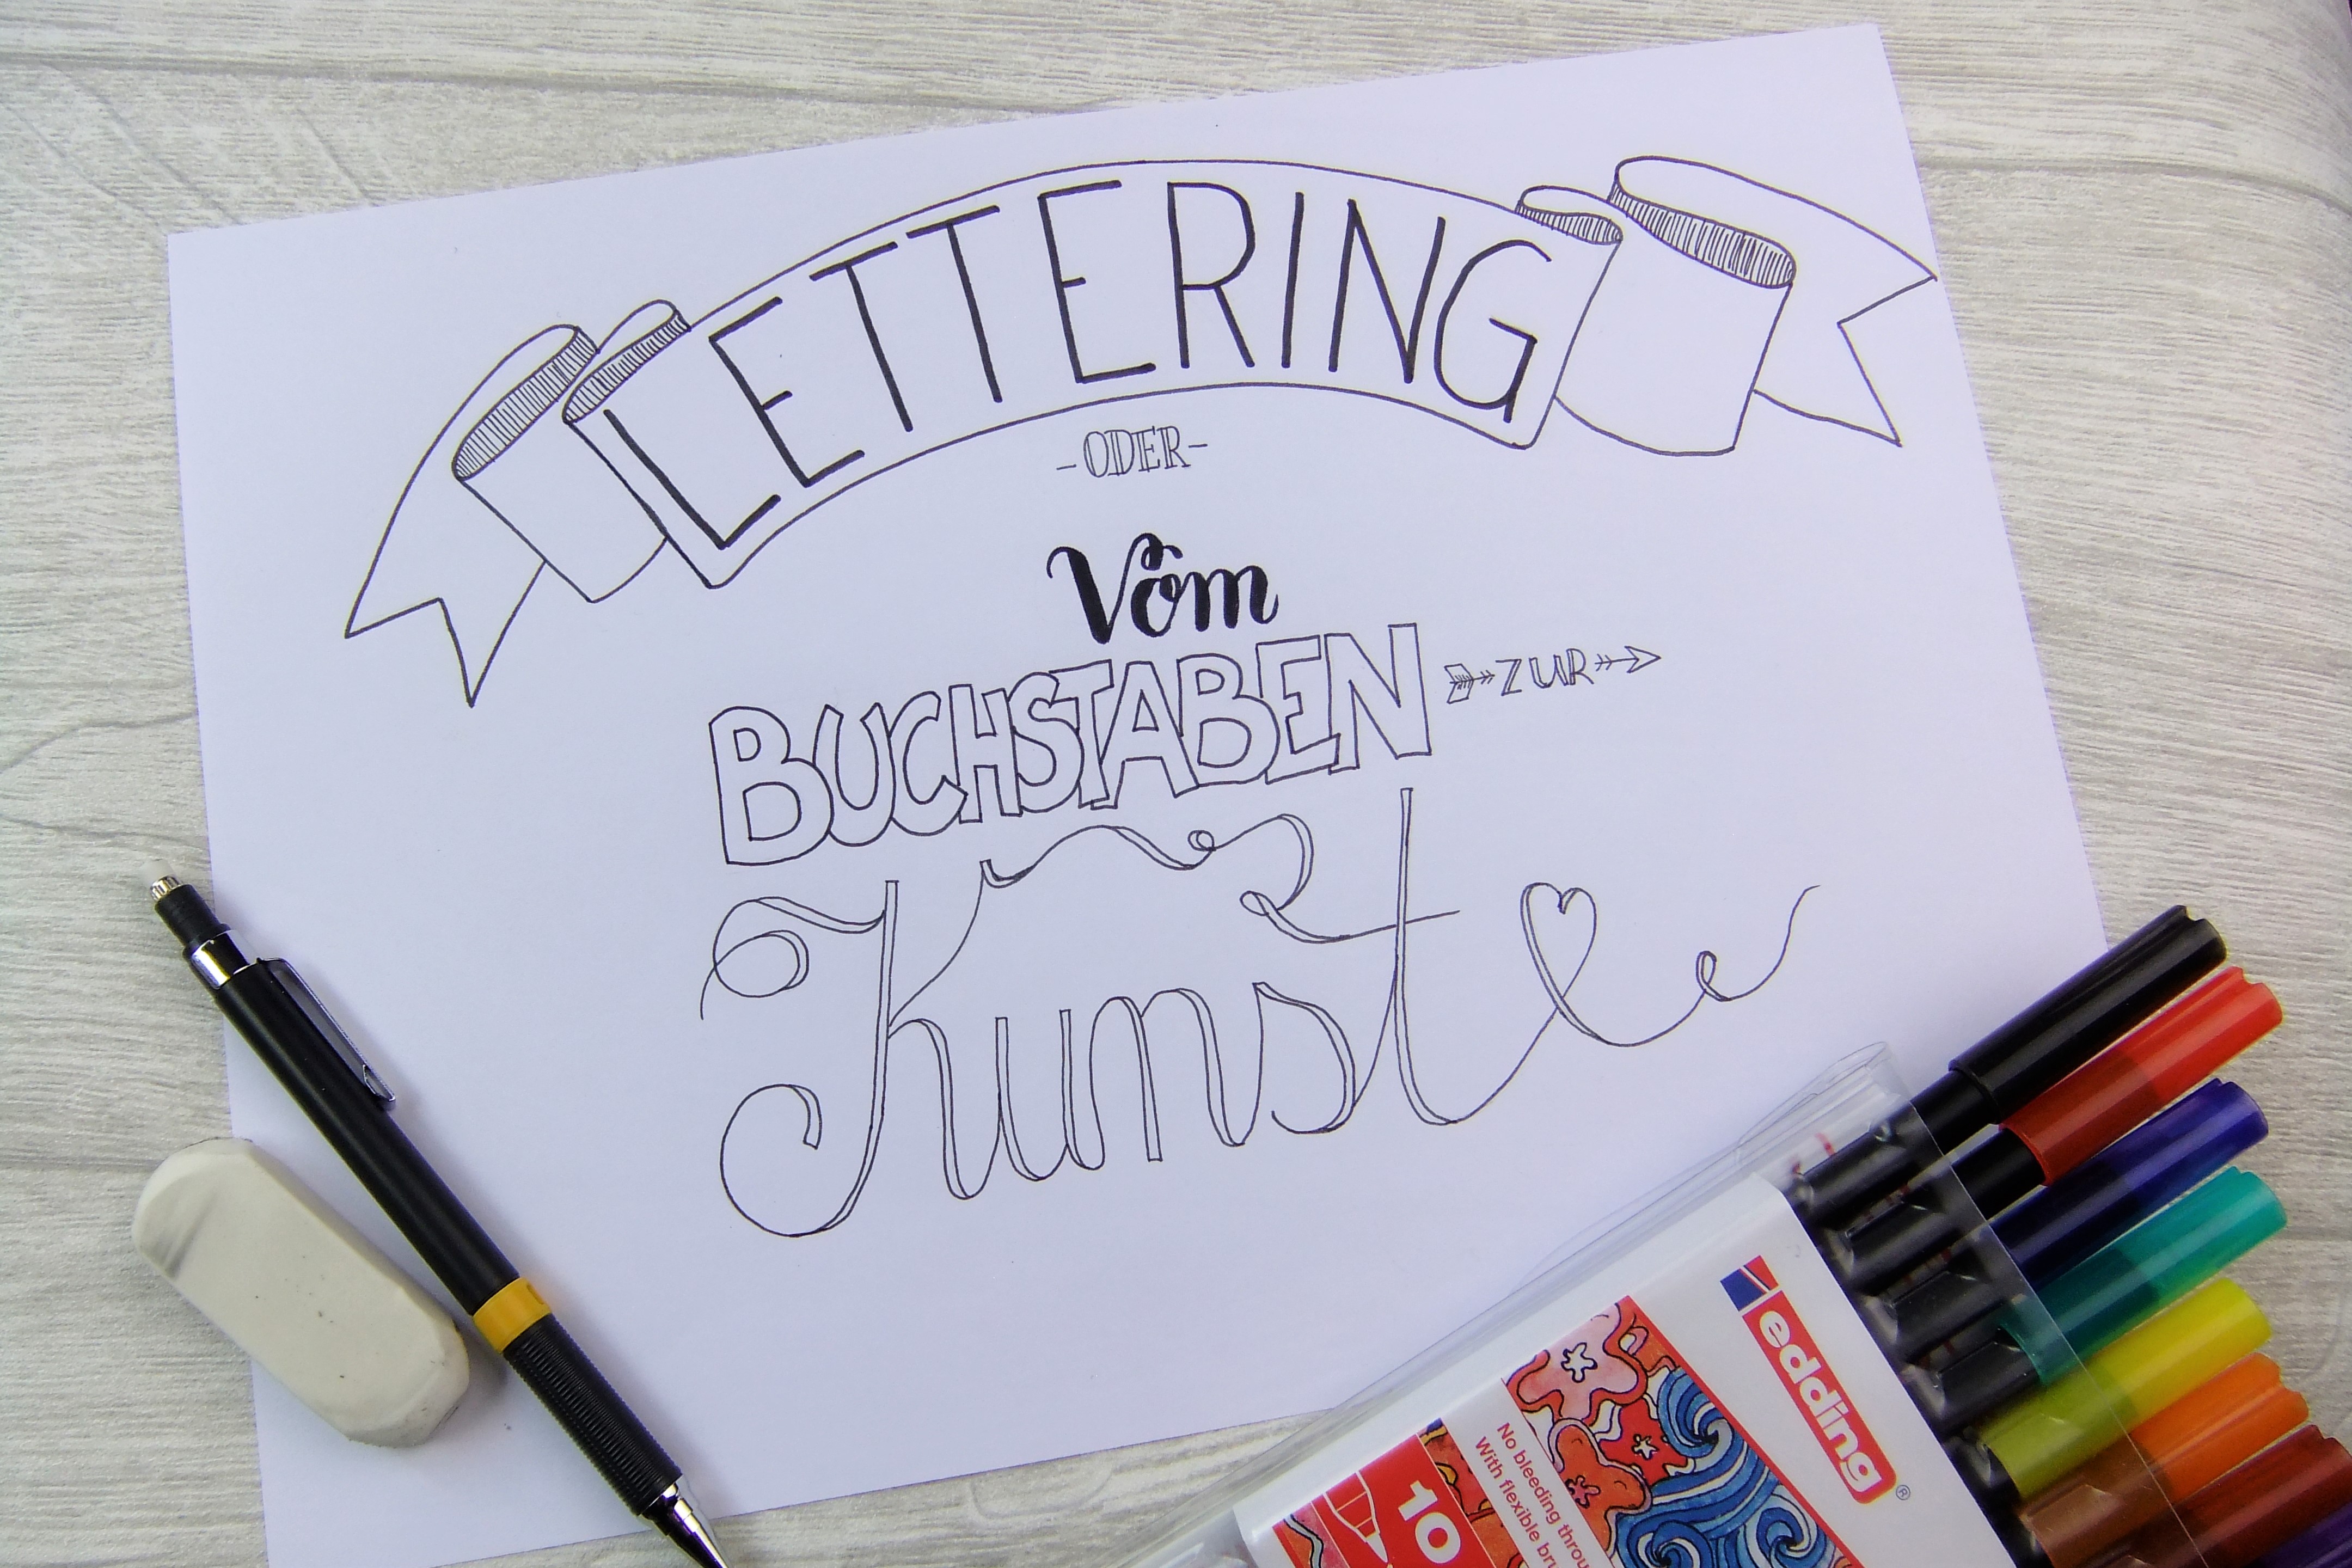 LETTERING
-ODER-
Vom
BUCHSTABEN ZUR
Kunst
edding®
10
No bleeding throu
With flexible bru